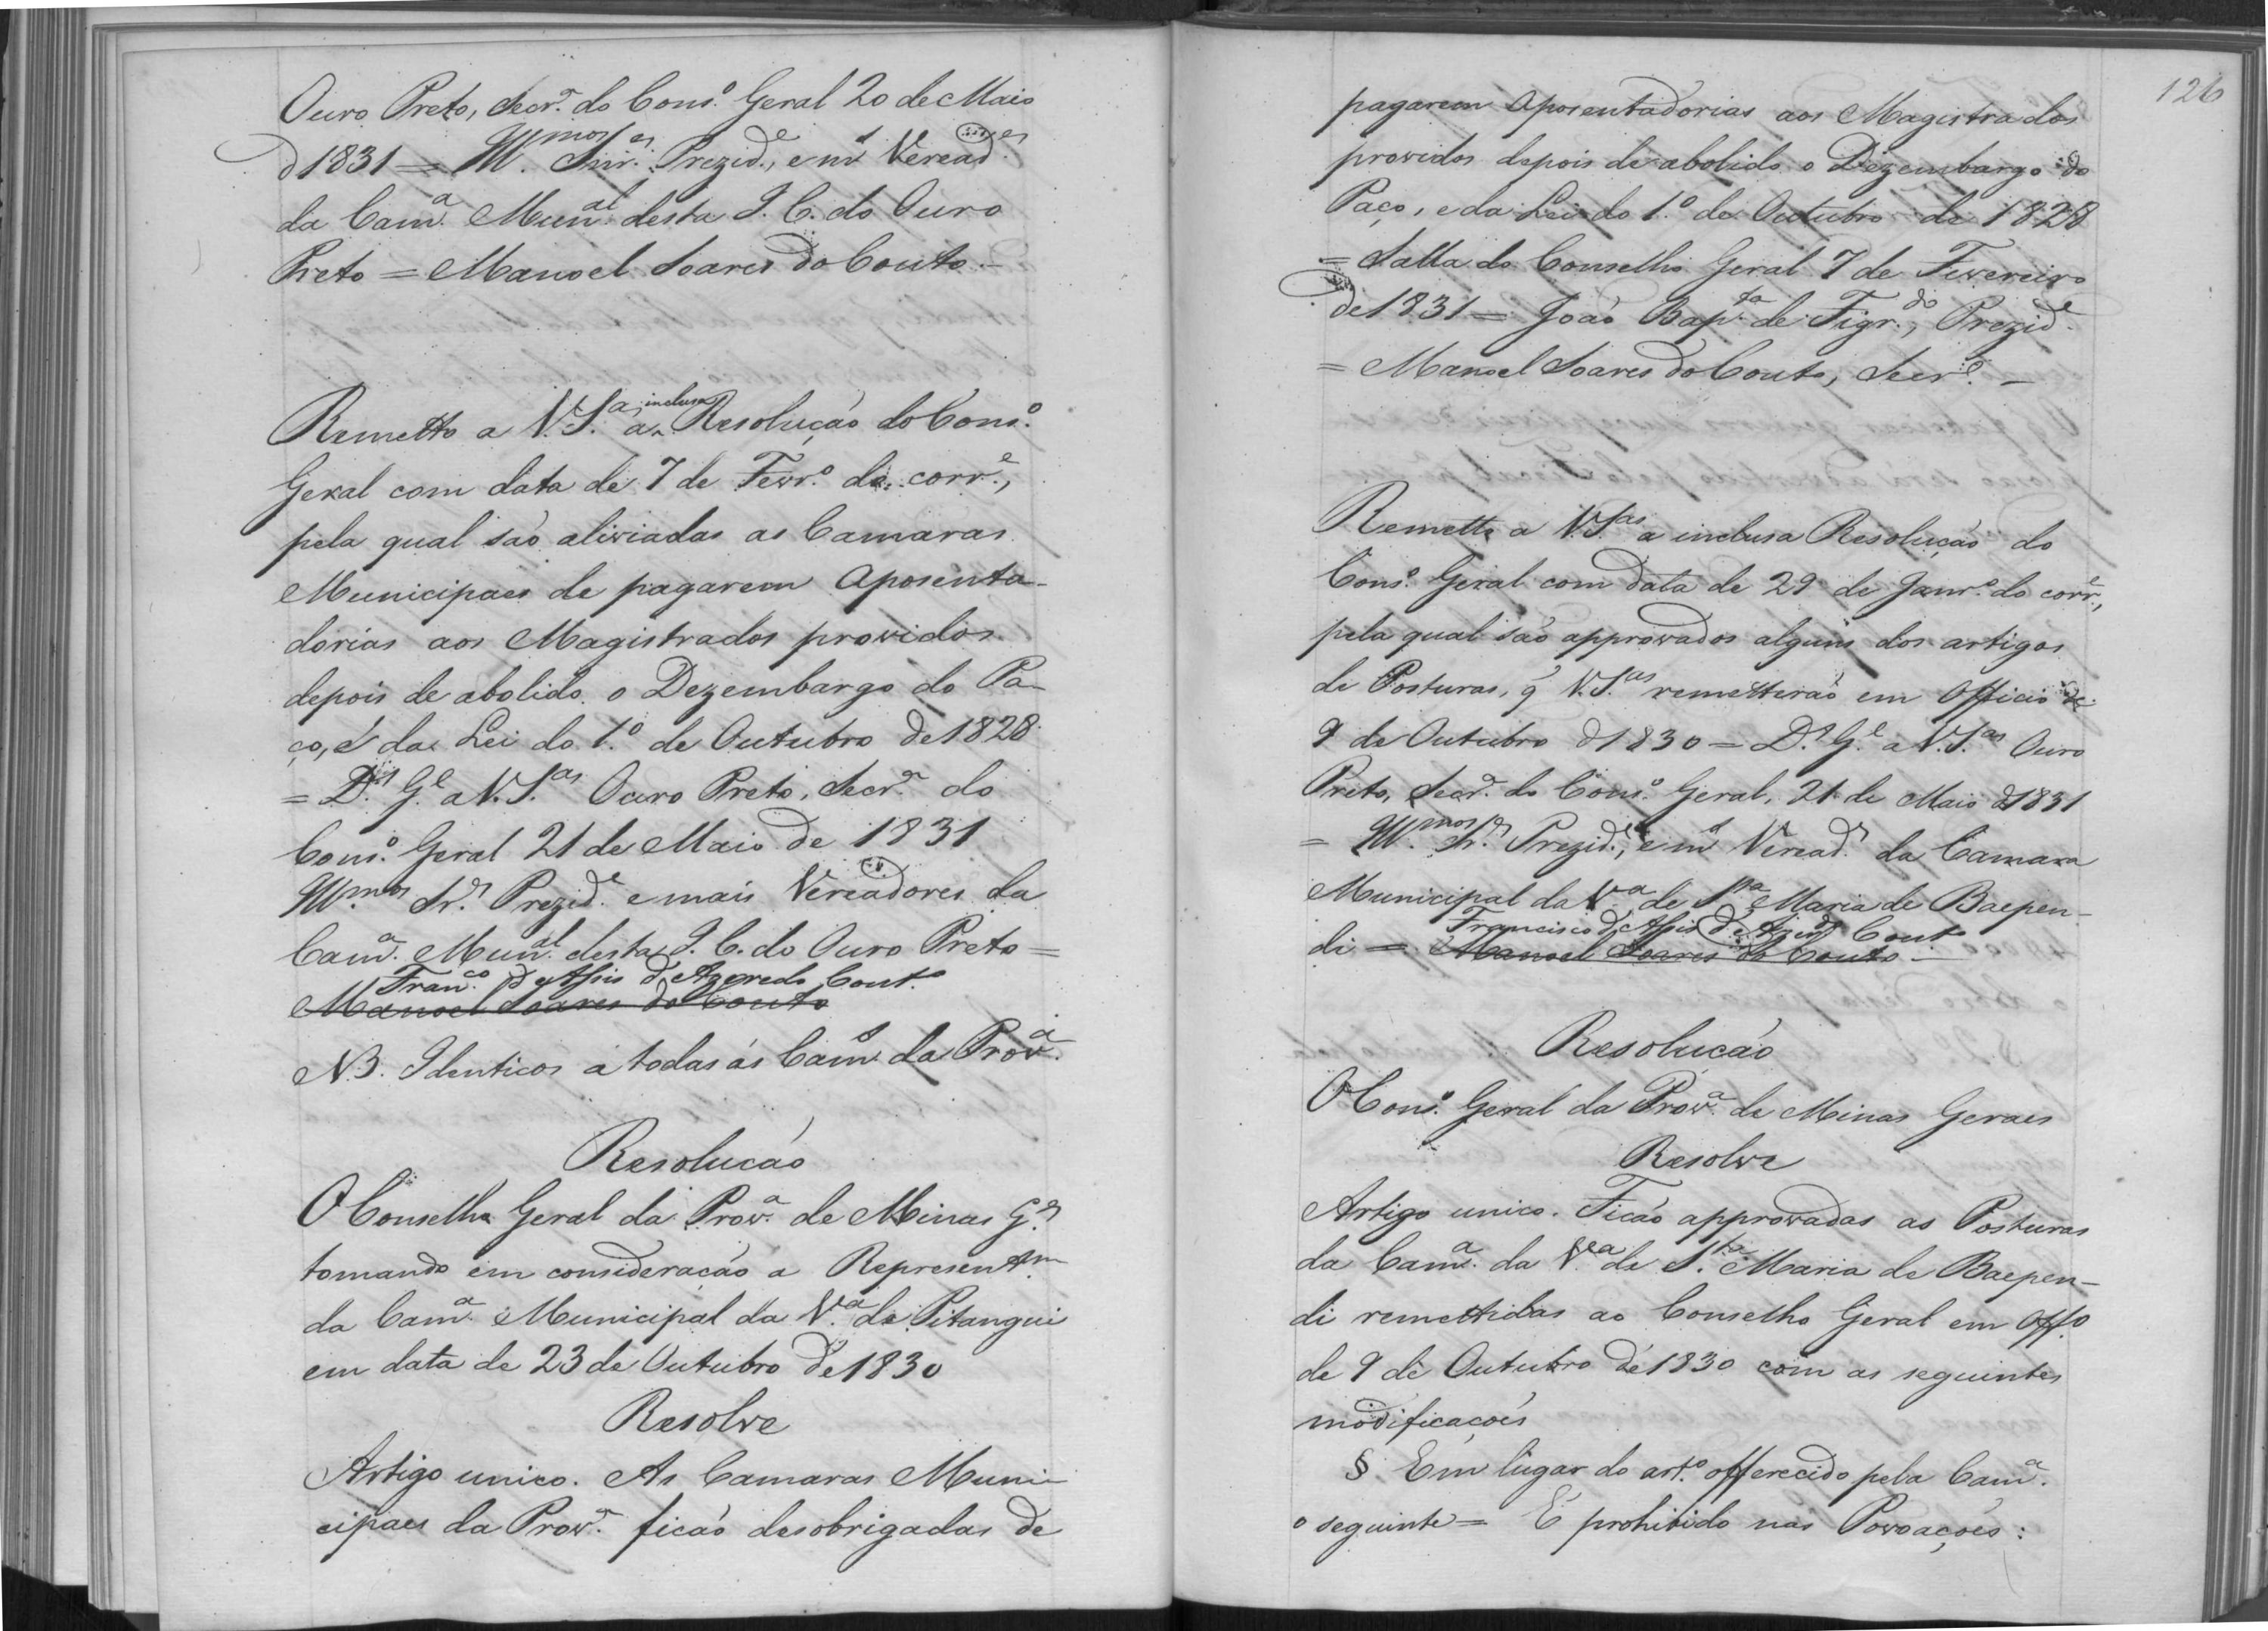 Ouro Preto, Secr.ª do Cons.º Geral 20 de Maio
d 1831 = Ill.mos Snr.es Prezid.e, e m.s Veread.es
da Cam.ª Mun.al desta I. C. do Ouro
Preto = Manoel Soares do Couto. -
Remetto a V. S.as a inclusa Resolução do Cons.º
Geral com data de 7 de Fevr.º do corr.e,
pela qual são aliviadas as Camaras
Municipaes de pagarem Aposenta-
dorias aos Magistrados providos
depois de abolido o Dezembargo do Pa-
ço, e da Lei do 1.º de Outubro de 1828
= D.s G.e a V. S.as Ouro Preto, Secr.ª do
Cons.º Geral 21 de Maio de 1831
Ill.mos Sr.es Prezid.e e mais Vereadores da
Cam.ª Mun.al desta I. C. do Ouro Preto =
Fran.co de Assis d'Azeredo Cout.º
Manoel Soares do Couto
N.B. Identicos a todas ás Cam.s da Prov.ª
Resolução
O Conselho Geral da Prov.ª de Minas G.es
tomando em consideração a Represent.am
da Cam.ª Municipal da V.ª de Pitangui
em data de 23 de Outubro de 1830
Resolve
Artigo unico. As Camaras Muni-
cipaes da Prov.ª ficão desobrigadas de
126
pagarem Aposentadorias aos Magistrados
providos depois de abolido o Dezembargo do
Paço, e da Lei do 1.º de Outubro de 1828
= Salla do Conselho Geral 7 de Fevereiro
de 1831 = João Bap.ta de Figr.do, Prezid.e
= Manoel Soares do Couto, Secr.º -
Remetto a V. S.as a inclusa Resolução do
Cons.º Geral com data de 29 de Janr.º do corr.e,
pela qual são approvados alguns dos artigos
de Posturas, q̃ V. S.as remetterão em Officio de
9 de Outubro d 1830 = D.s G.e a V. S.as Ouro
Preto, Secr.ª do Cons.º Geral, 21 de Maio d 1831
= Ill.mos Sr.es Prezid.e, e m.s Veread.es da Camara
Municipal da V.ª de S.ta Maria de Baepen-
Francisco d'Assis d'Azerd.º Couto
di = Manoel Soares do Couto -
Resolução
O Cons.º Geral da Prov.ª de Minas Geraes
Resolve
Artigo unico. Ficão approvadas as Posturas
da Cam.ª da V.ª de S.ta Maria de Baepen-
di remettidas ao Conselho Geral em Off.º
de 9 de Outubro de 1830 com as seguintes
modificações
§ Em lugar do art.º offerecido pela Cam.ª
o seguinte = É prohibido nas Povoações: